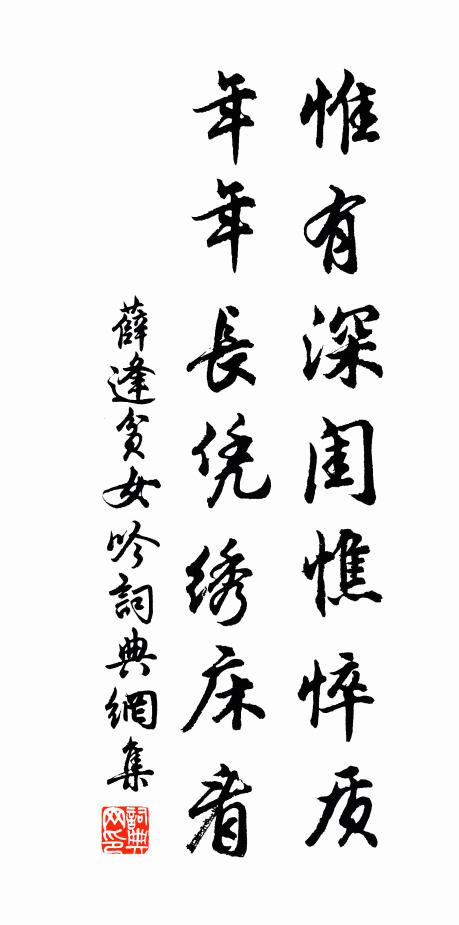 惟有深闺憔悴质
年年長凭绣床看
薛逢贫女吟詞典網集
詞典网印